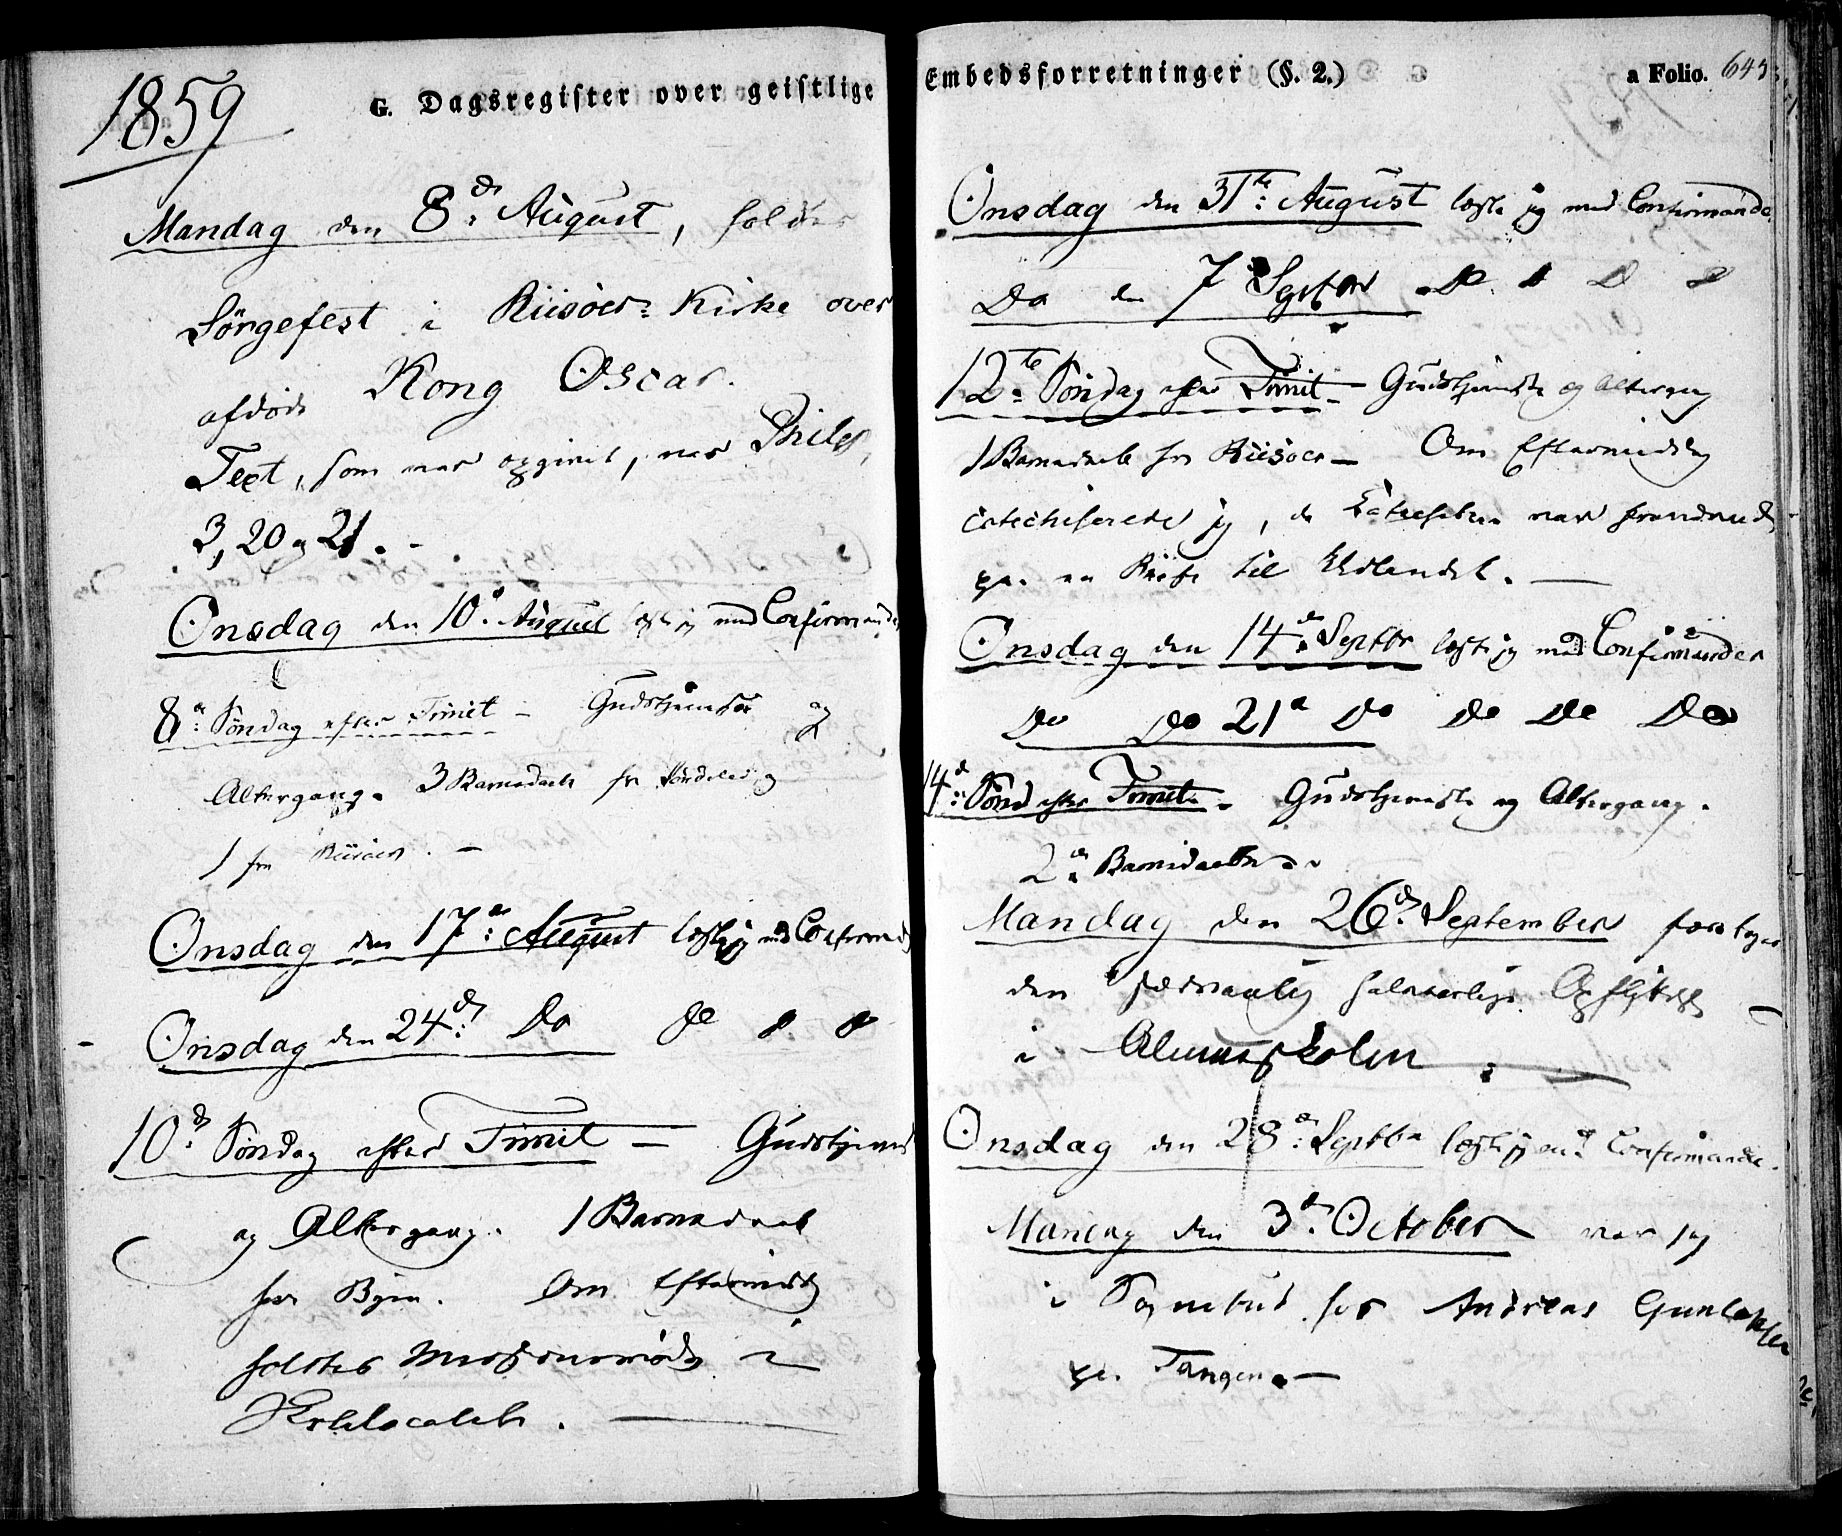 1859
G. Dagsregister over geistlige
Mandag den 8de August, holdtes
Sørgefest i Riisøer Kirke over
afdøde Kong Oscar.
Text, som var opgivet, var Philip,
3, 20 og 21.
Onsdag den 10de August læste jeg med Confirmander
8de Søndag efter Trinit - Gudstjeneste og
Altergang. 3 Barnedaab fra Søndeled og
1 fra Riisøer. -
Onsdag den 17de August læste jeg med Confirmand
Onsdag den 24de Do Do Do Do
10de Søndag efter Trinit - Gudstjeneste
og Altergang. 1 Barnedaab
fra Byen. Om Eftermiddag
holdtes Missionsmøde i
Skolelocalet.
Embedsforretninger (§. 2.) a Folio. 643
Onsdag den 31te August læste jeg med Confirmander
Do den 7 Septbr Do Do Do Do
12te Søndag efter Trinit - Gudstjeneste og Altergang
1 Barnedaab fra Riisøer - Om Eftermiddag
catechiserede jeg, da var fraværende
paa en Reise til Udlandet. -
Onsdag den 14de Septbr læste jeg med Confirmander
Do Do 21de Do Do Do Do
14de Sønd efter Trinit. - Gudstjeneste og Altergang.
2de Barnedaab
Mandag den 26de September foretoges
den sædvanlig halvaarlige
i Almueskolen.
Onsdag den 28de Septbr læste jeg med Confirmander.
Mandag den 3de October var jeg
i Sognebud hos Andreas
paa Tangen. -